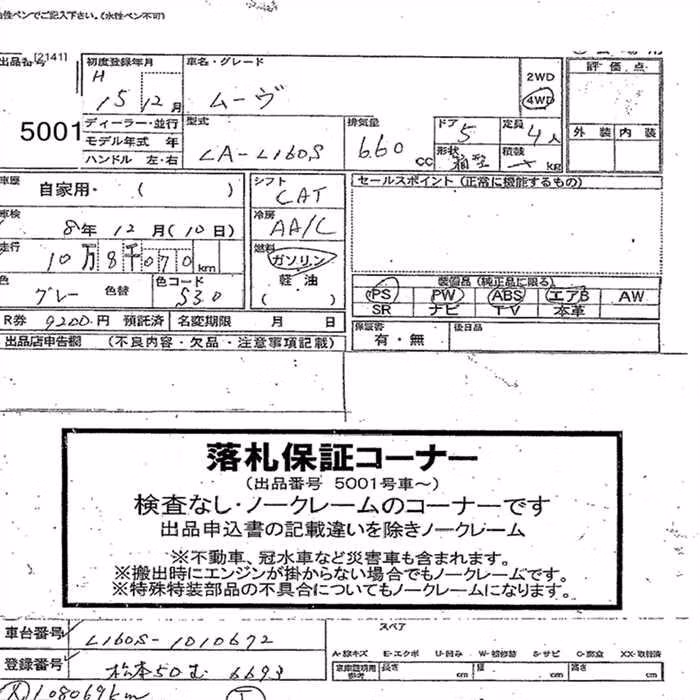 油性ペンでご記入下さい。(水性ペン不可)
出品番号 [2141] 初度登録年月 車名・グレード 評価点
H 15 12月 ムーヴ 2WD 4WD
5001 ディーラー・並行 型式 排気量 ドア 5 定員 4人 外装 内装
モデル年式 年 LA-L160S 660cc 形状 箱型 積載 kg
ハンドル 左・右
車歴 自家用・( ) シフト CAT セールスポイント (正常に機能するもの)
車検 8年 12月(10日) 冷房 AA/C
走行 10万8千070km 燃料 ガソリン
軽油
( )
色 グレー 色替 色コード S30
装備品 (純正品に限る)
PS PW ABS エアB AW
SR ナビ TV 本革
R券 9200円 預託済 名変期限 月 日 保証書 有・無 後日品
出品店申告欄 (不良内容・欠品・注意事項記載)
落札保証コーナー
(出品番号 5001号車～)
検査なし・ノークレームのコーナーです
出品申込書の記載違いを除きノークレーム
※不動車、冠水車など災害車も含まれます。
※搬出時にエンジンが掛からない場合でもノークレームです。
※特殊特装部品の不具合についてもノークレームになります。
車台番号 L160S-1010672 スペア
A-線キズ E-エクボ U-凹み W-補修跡 S-サビ C-腐食 XX-取替済
登録番号 松本50む 6693 長さ cm 幅 cm 高さ cm
108069km